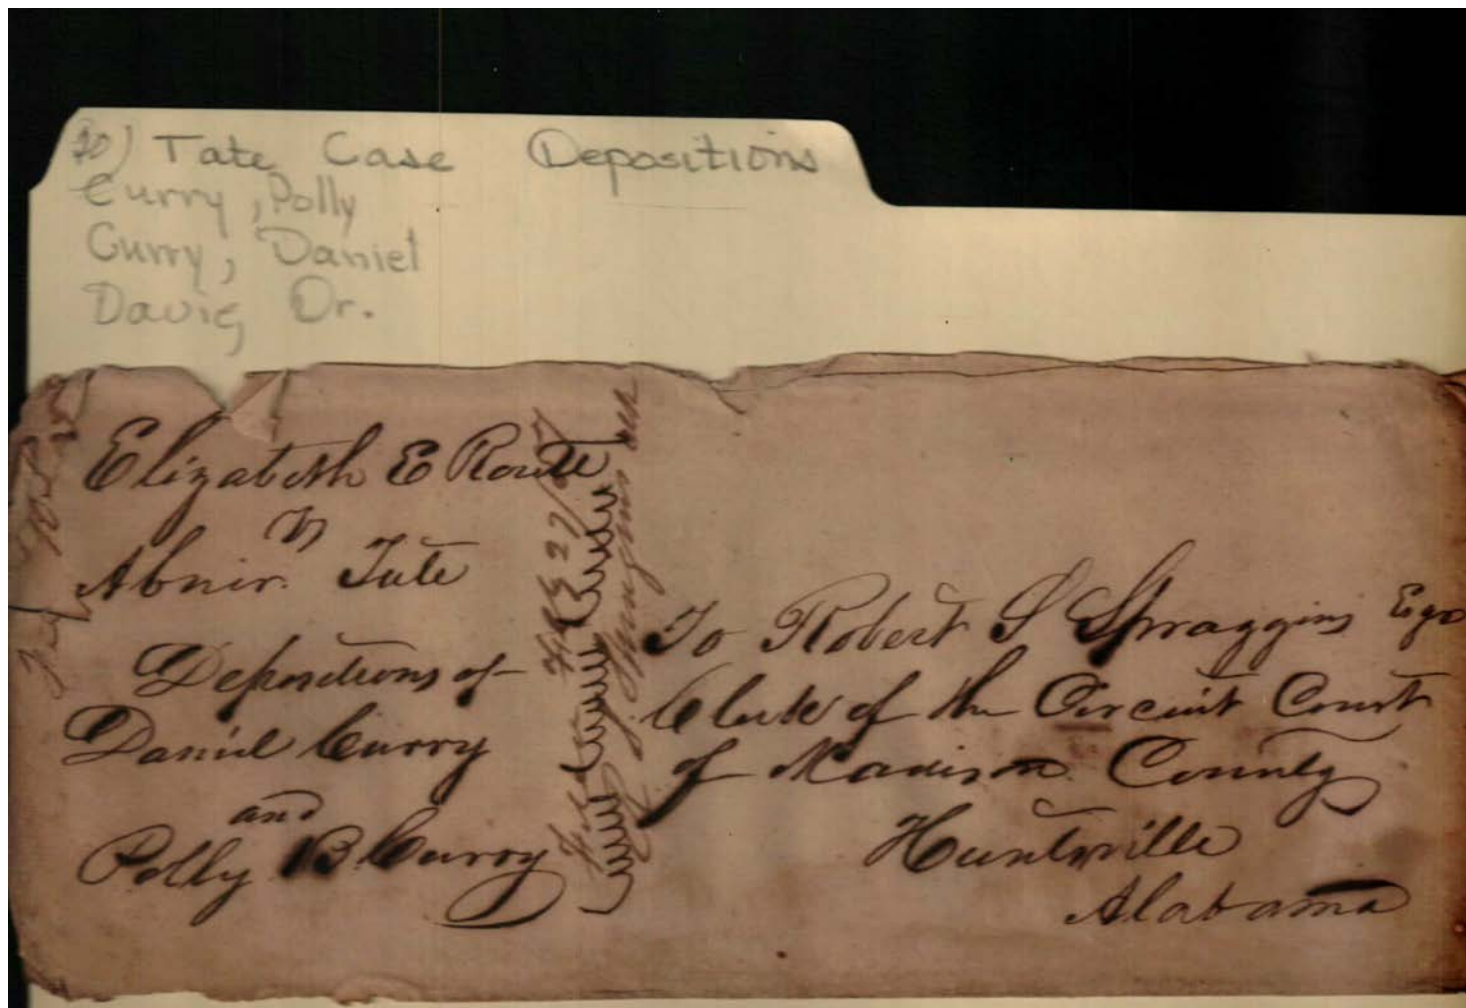 20) Tate Case Depositions
Curry, Polly
Curry, Daniel
Davis, Dr.
Elizabeth E Routt
vs
Abner. Tate
Depositions of
Daniel Curry
and
Polly B. Curry
To Robert S Spraggins Esqr
Clerk of the Circuit Court
of Madison County
Huntsville
Alabama